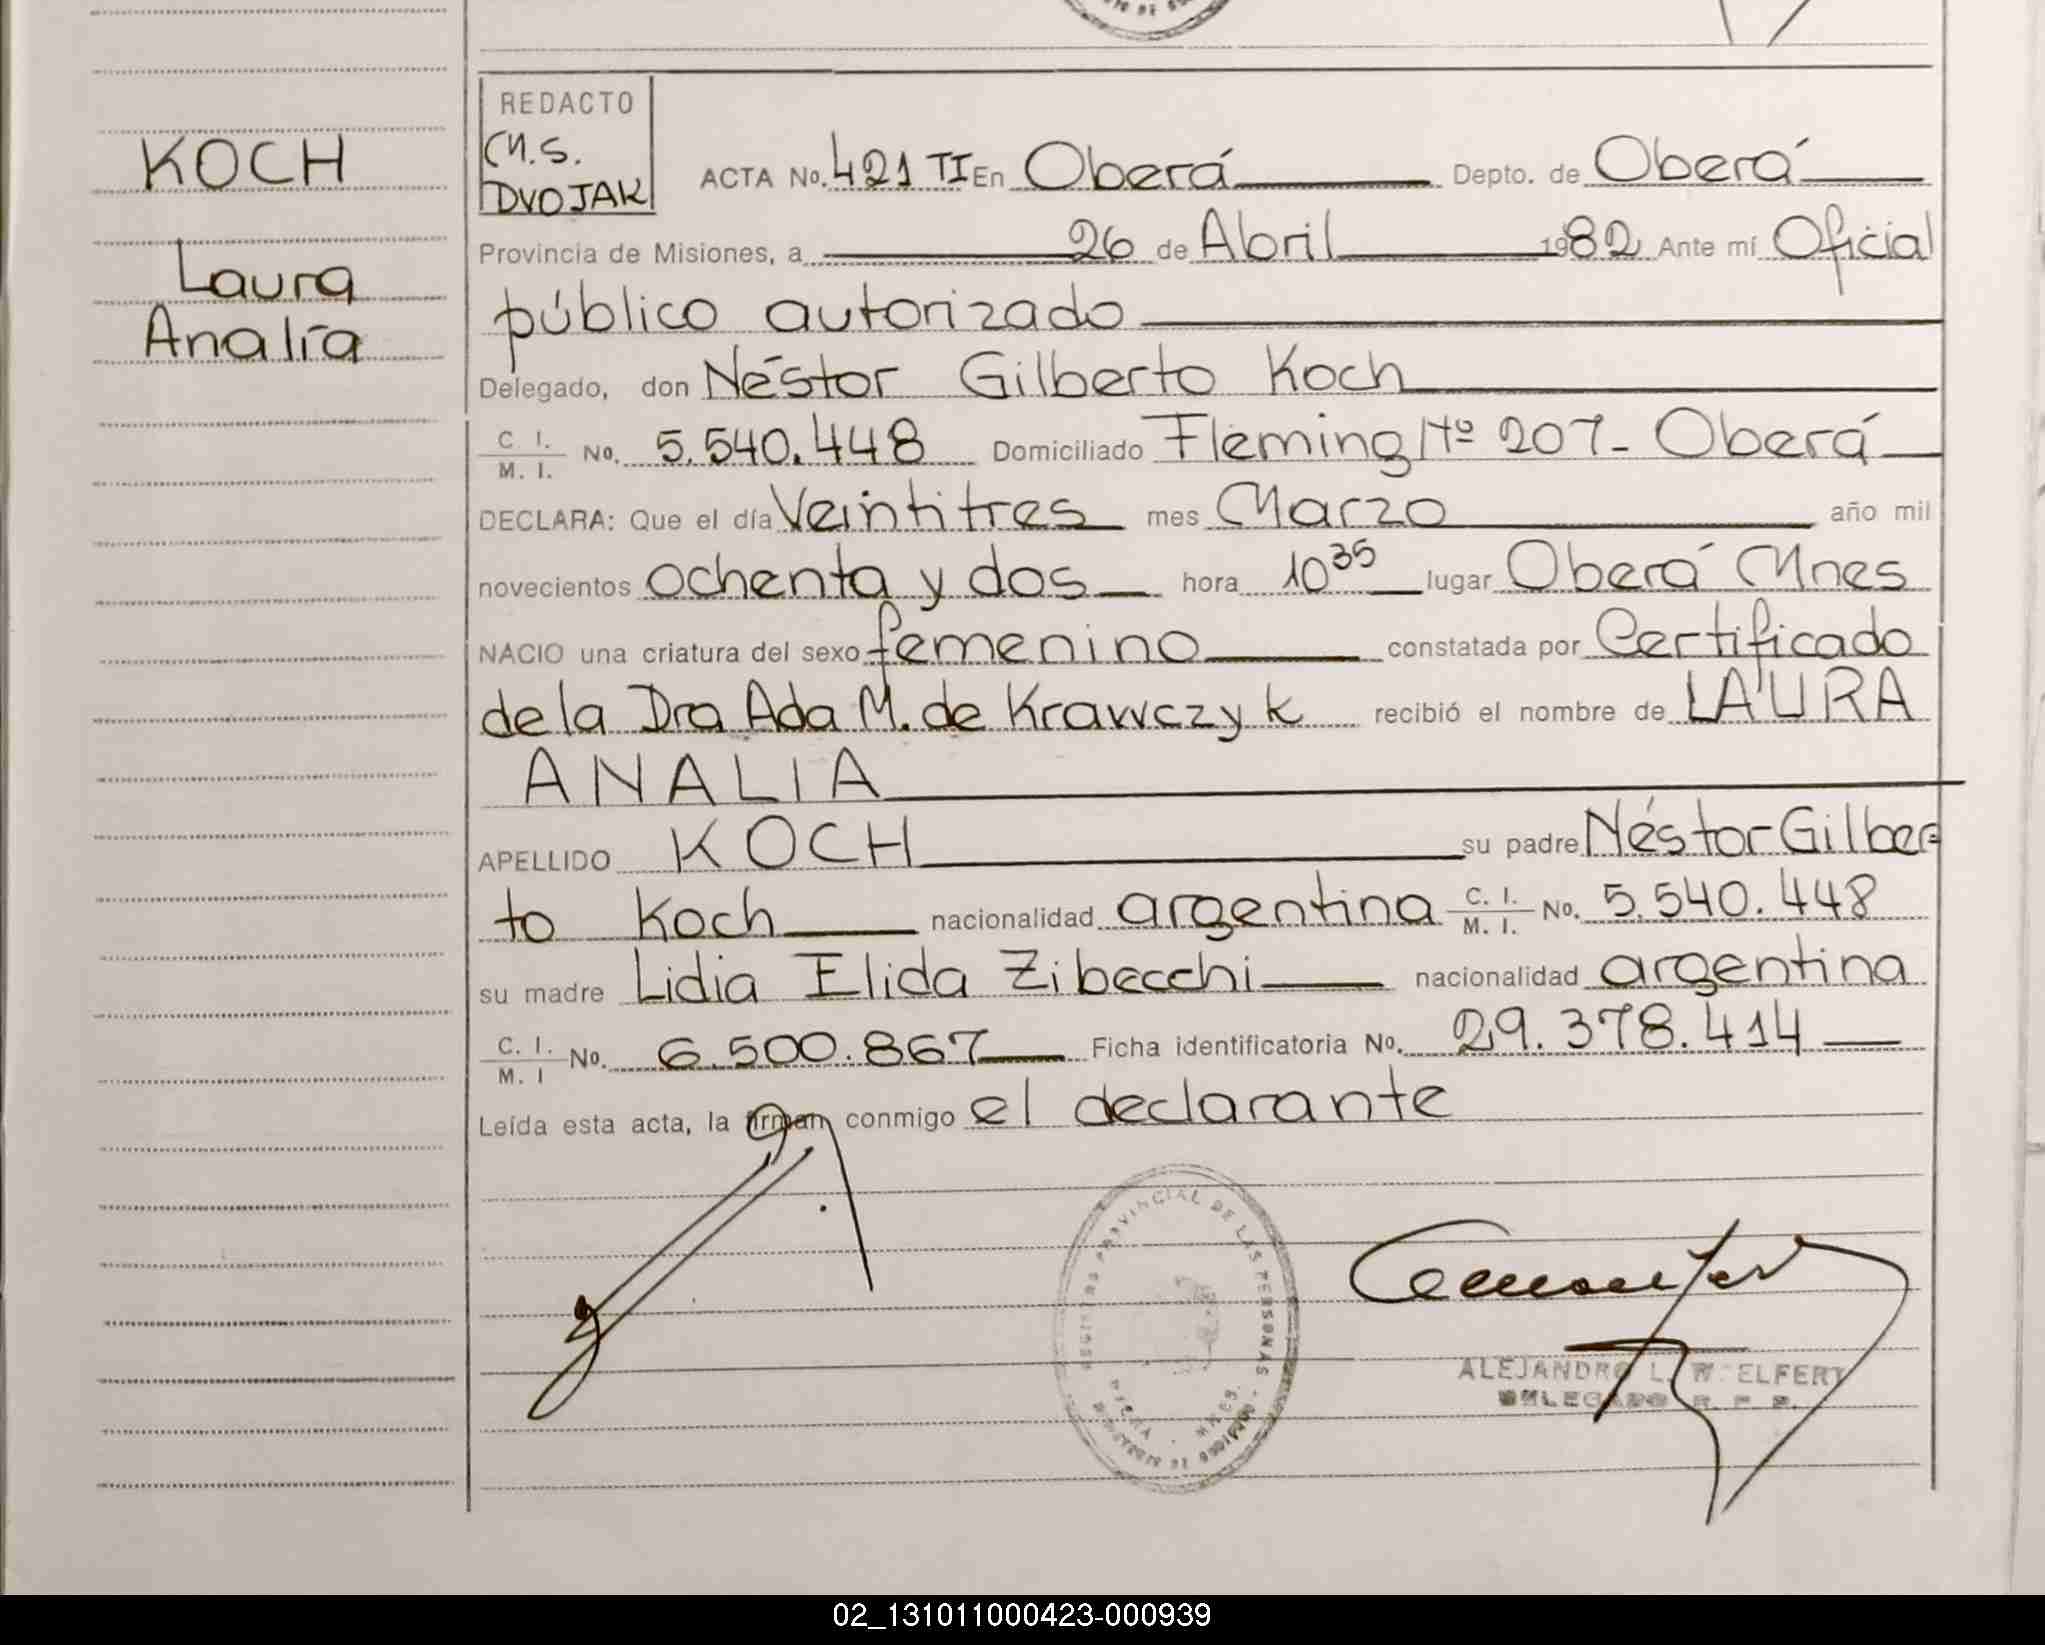 REDACTO
M.S.
DVOJAK
KOCH
Laura
Analía
ACTA No. 421 TI En Oberá Depto. de Oberá
Provincia de Misiones, a 26 de Abril 1982 Ante mí Oficial
público autorizado
Delegado, don Néstor Gilberto Koch
C. I. / M. I. No. 5.540.448 Domiciliado Fleming Nº 207 - Oberá
DECLARA: Que el día Veintitres mes Marzo año mil
novecientos ochenta y dos hora 10 35 lugar Oberá Mnes
NACIO una criatura del sexo femenino constatada por Certificado
de la Dra Ada M. de Krawczyk recibió el nombre de LAURA
ANALIA
APELLIDO KOCH su padre Néstor Gilber=
to Koch nacionalidad argentina C. I. / M. I. No. 5.540.448
su madre Lidia Elida Zibecchi nacionalidad argentina
C. I. / M. I No. 6.500.867 Ficha identificatoria No. 29.378.414
Leída esta acta, la firman conmigo el declarante
REGISTRO PROVINCIAL DE LAS PERSONAS
ALEJANDRO L. W. ELFERT
DELEGADO R. P. P.
02_131011000423-000939